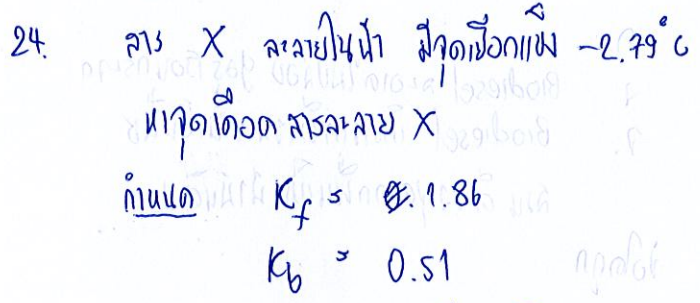 24. สาร X ละลายในน้ำ มีจุดเยือกแข็ง -2.79°C
หาจุดเดือด สารละลาย X
กำหนด Kf = 1.86
Kb = 0.51